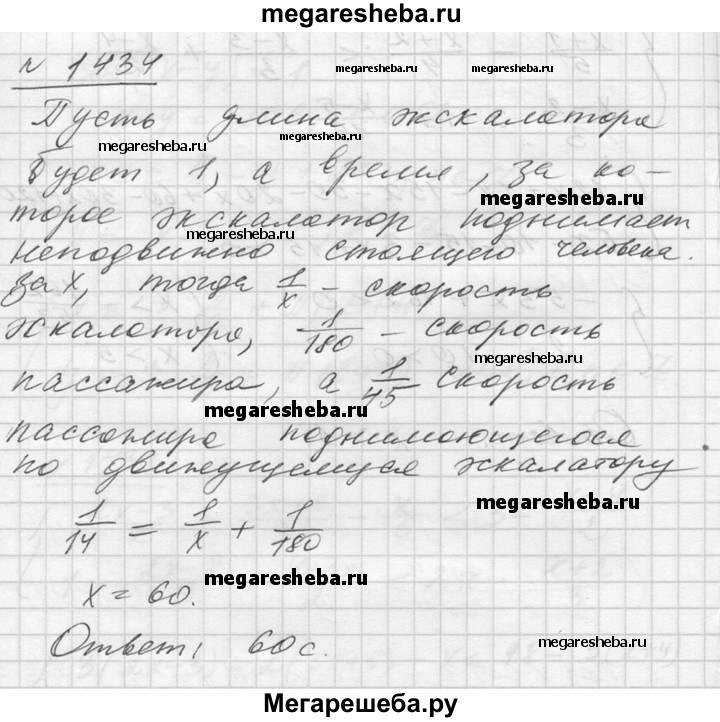 megaresheba.ru
№ 1434
megaresheba.ru
Пусть длина экскалатора
megaresheba.ru
megaresheba.ru
будет 1, а время, за ко-
megaresheba.ru
торое экскалатор поднимает
megaresheba.ru
неподвижно стоящего человека.
за x, тогда 1/x - скорость
экскалатора, 1/180 - скорость
megaresheba.ru
пассажира, а 1/45 скорость
megaresheba.ru
пассажира поднимающегося
по движущемуся эскалатору.
megaresheba.ru
1/14 = 1/x + 1/180
megaresheba.ru
x = 60.
megaresheba.ru
Ответ: 60 с.
Мегарешеба.ру